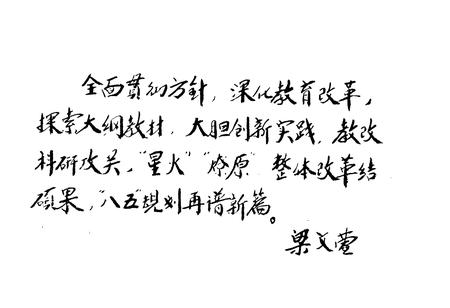 全面贯彻方针，深化教育改革，
探索大纲教材，大胆创新实践，教改
科研攻关，“星火”“燎原”整体改革结
硕果，“八五”规划再谱新篇。
梁文萱